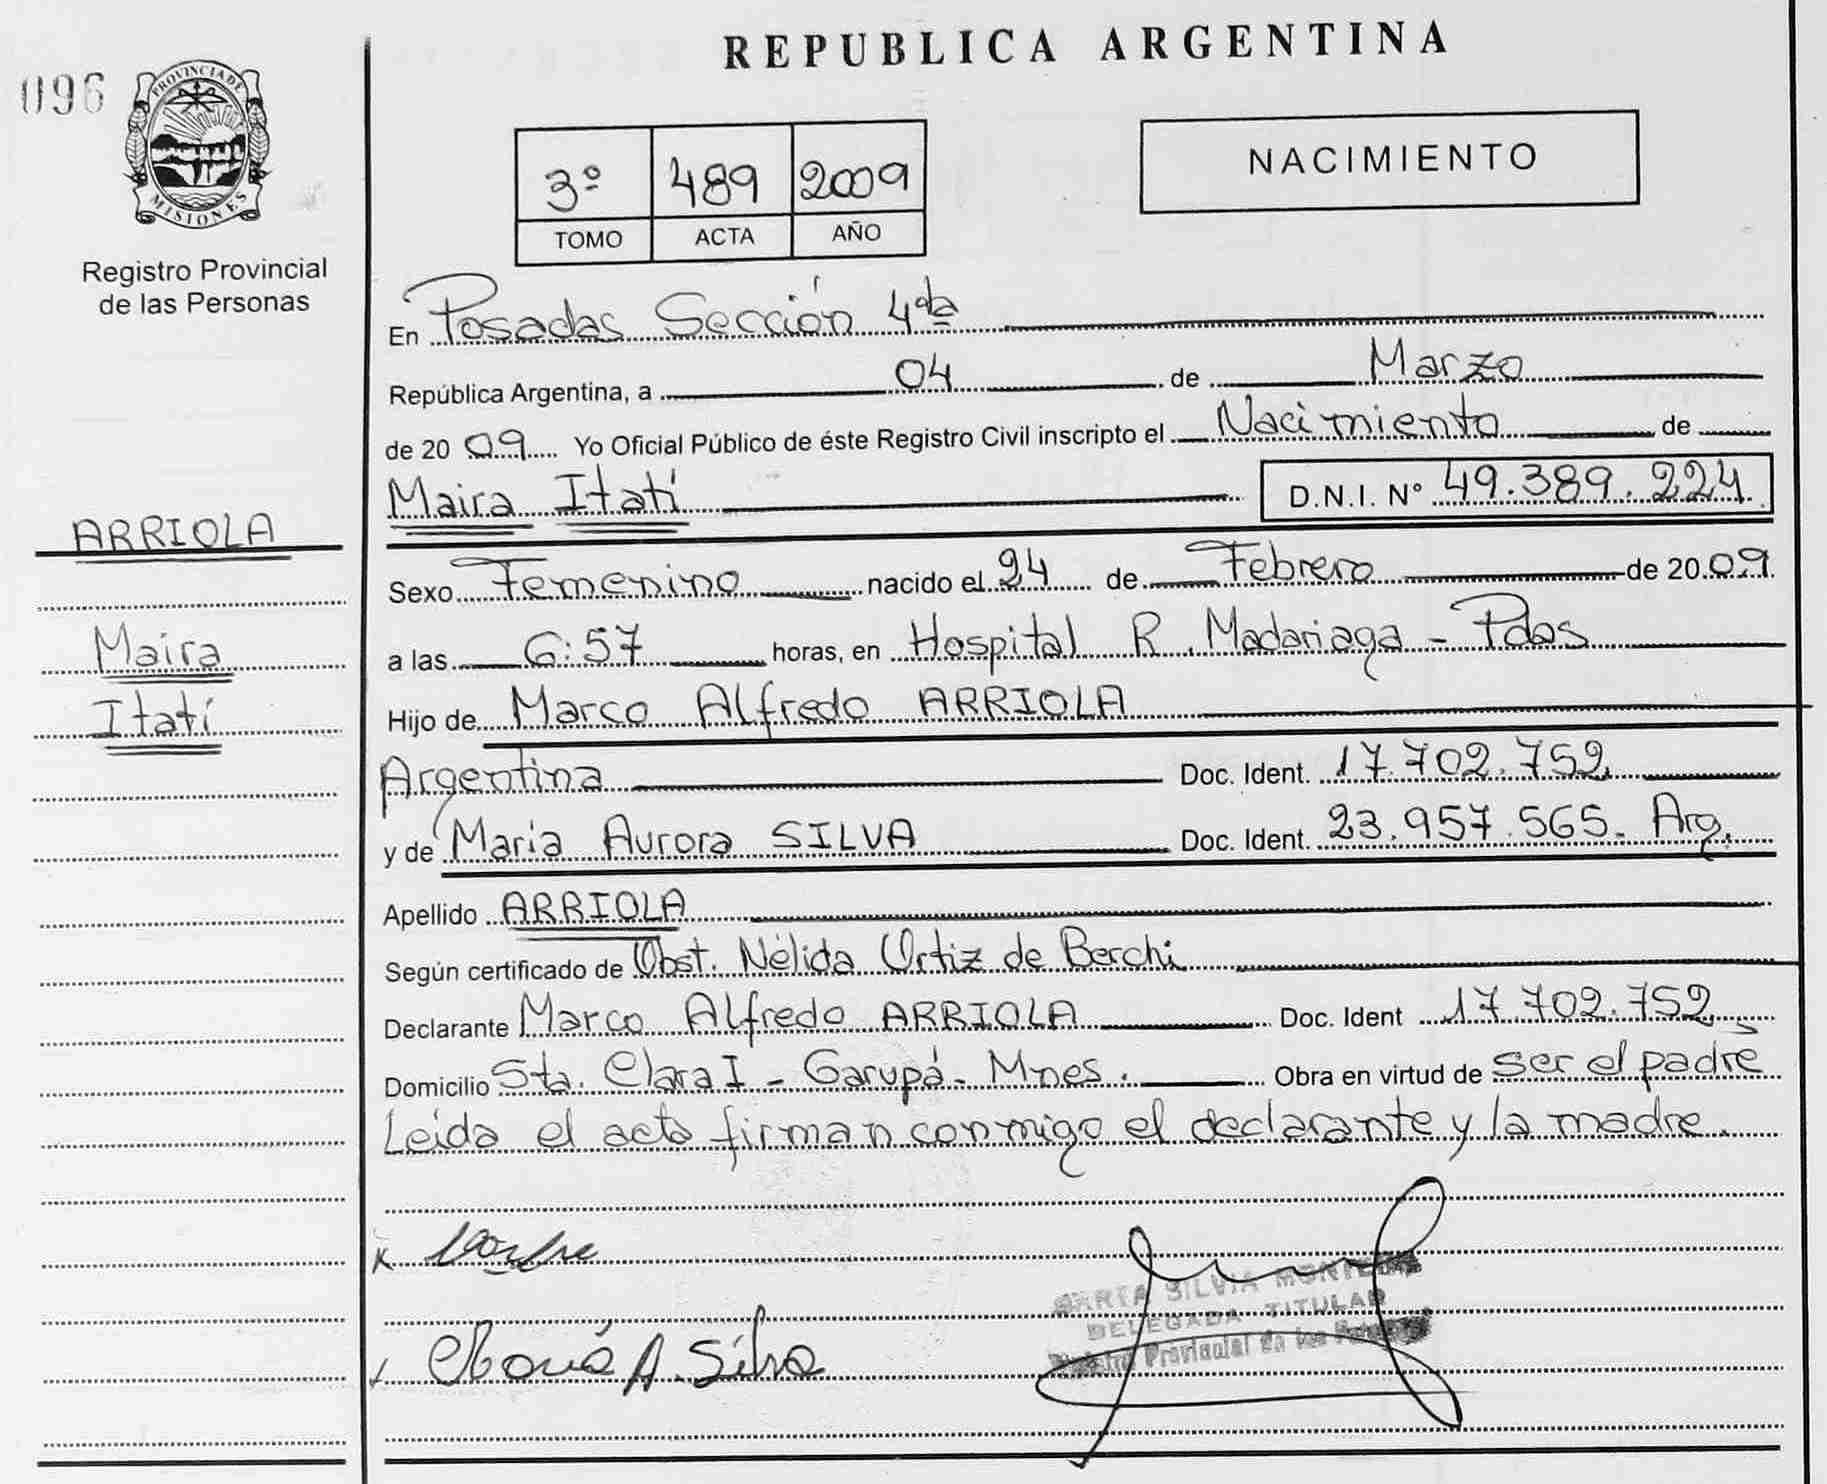 REPUBLICA ARGENTINA
096
PROVINCIA DE
MISIONES
Registro Provincial
de las Personas
3º 489 2009
TOMO ACTA AÑO
NACIMIENTO
En Posadas Sección 4da
República Argentina, a 04 de Marzo
de 20 09 Yo Oficial Público de éste Registro Civil inscripto el Nacimiento de
Maira Itatí D.N.I. Nº 49.389.224
ARRIOLA
Maira
Itatí
Sexo Femenino nacido el 24 de Febrero de 20 09
a las 6:57 horas, en Hospital R. Madariaga - Pdas
Hijo de Marco Alfredo ARRIOLA
Argentina Doc. Ident. 17.702.752
y de Maria Aurora SILVA Doc. Ident. 23.957.565. Arg.
Apellido ARRIOLA
Según certificado de Obst. Nélida Ortiz de Berchi
Declarante Marco Alfredo ARRIOLA Doc. Ident 17.702.752
Domicilio Sta. Clara I - Garupá - Mnes. Obra en virtud de ser el padre
Leída el acta firman conmigo el declarante y la madre.
x
María A. Silva
SILVIA
DELEGADA TITULAR
Provincial de las